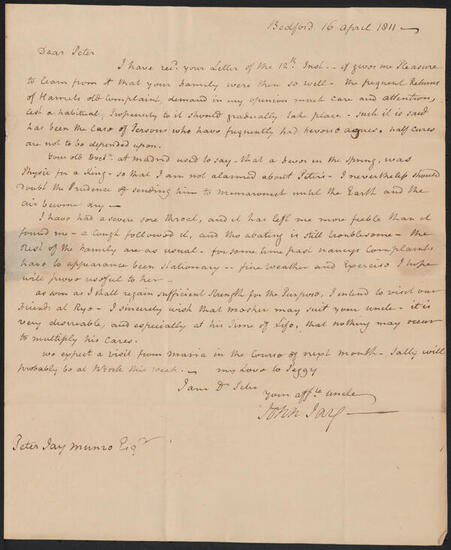 Bedford 16 April 1811 —
Dear Peter
I have recd. your Letter of the 12th. Inst. — it gives me Pleasure
to learn from it that your Family were then so well — the frequent Returns
of Harriets old Complaint, demand in my opinion much care and attention,
lest a habitual Propensity to it should gradually take place — such it is said
has been the Case of Persons who have frequently had Fevers & agues. half cures
are not to be depended upon.
Your old Doctr. at madrid used to say — that a Fever in the Spring, was
Physic for a King — so that I am not alarmed about Peters — I nevertheless should
doubt the Prudence of sending him to mamaroneck until the Earth and the
air become dry —
I have had a severe sore throat, and it has left me more feeble than it
found me — a Cough followed it, and tho abating is still troublesome — the
Rest of the Family are as usual — for some time past nancys Complaints
have to appearance been stationary — fine weather and Exercise I hope
will prove useful to her —
as soon as I shall regain sufficient strength for the Purpose, I intend to visit our
Friends at Rye — I sincerely wish that may suit your uncle — it is
very desireable, and especially at his Time of Life, that nothing may occur
to multiply his Cares.
we expect a visit from Maria in the Course of next month — Sally will
probably be at this week — my Love to Peggy
I am Dr. Peter
Your affte. uncle
John Jay —
Peter Jay Munro Esqr.